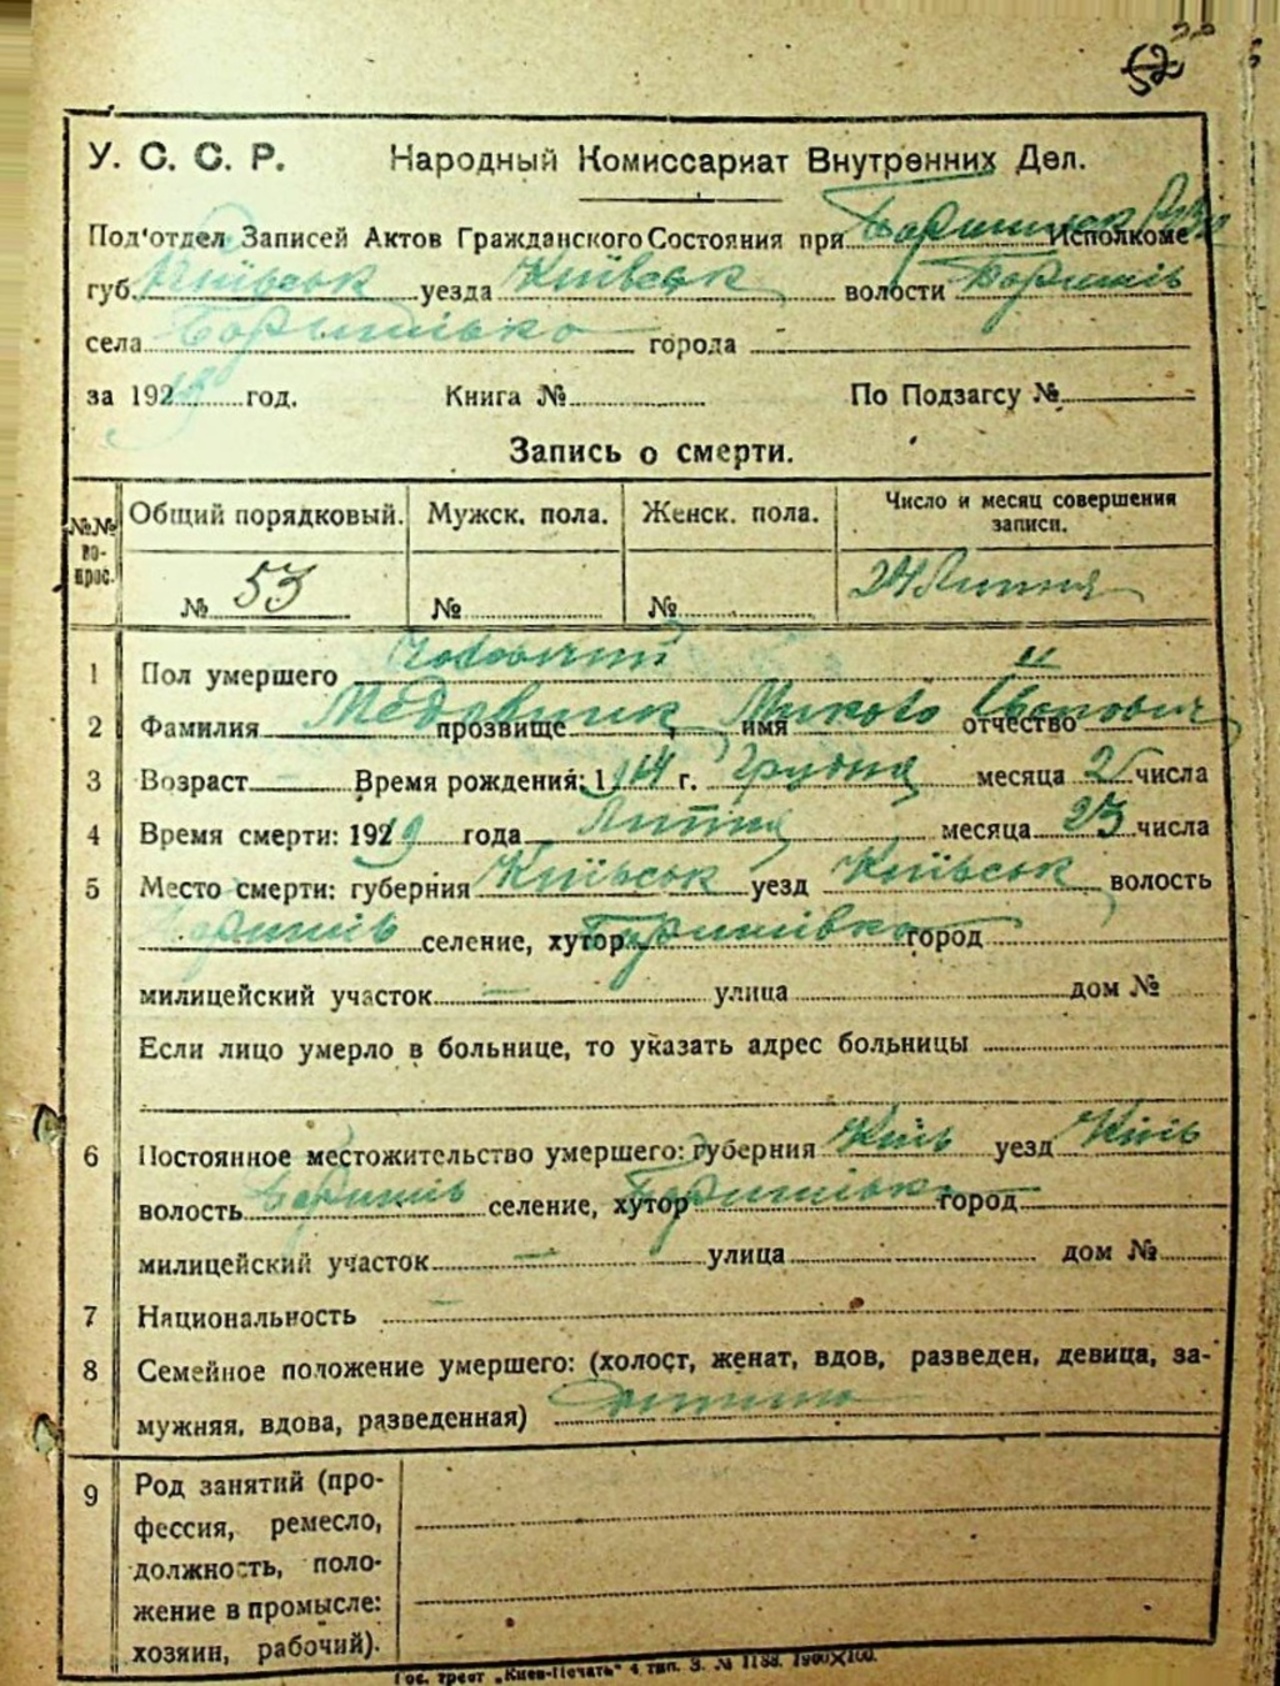 У. С. С. Р. Народный Комиссариат Внутренних Дел.
Под'отдел Записей Актов Гражданского Состояния при Исполкоме
губ. Київськ уезда Київськ волости Баришів
села Баришівка города
за 192 год. Книга № По Подзагсу №
Запись о смерти.
№№ вопрос.
Общий порядковый. Мужск. пола. Женск. пола. Число и месяц совершения записи.
№ 53 № № 24 Липня
1 Пол умершего Чоловічий
2 Фамилия Медовник прозвище имя Микола отчество Іванович
3 Возраст — Время рождения: 1914 г. Грудня месяца 2 числа
4 Время смерти: 1929 года Липня месяца 23 числа
5 Место смерти: губерния Київськ уезд Київськ волость
Баришів селение, хутор Баришівка город
милицейский участок — улица дом №
Если лицо умерло в больнице, то указать адрес больницы
6 Постоянное местожительство умершего: губерния Київ уезд Київ
волость Баришів селение, хутор Баришівка город
милицейский участок — улица дом №
7 Национальность
8 Семейное положение умершего: (холост, женат, вдов, разведен, девица, за-
мужняя, вдова, разведенная) Дитина
9 Род занятий (про-
фессия, ремесло,
должность, поло-
жение в промысле:
хозяин, рабочий).
Гос. трест „Киев-Печать" 4 тип. З. № 1188. 1900X100.